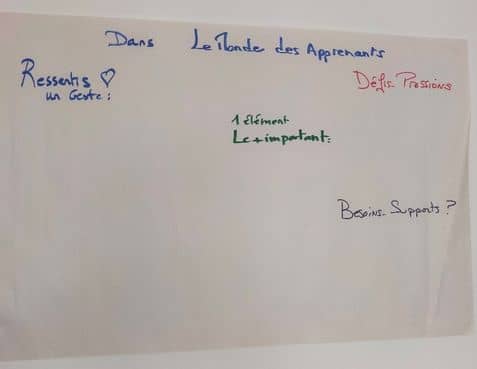 Dans Le Monde des Apprenants
Ressentis ♡
un Geste :
Défis-Pressions
1 élément
Le + important :
Besoins-Supports ?